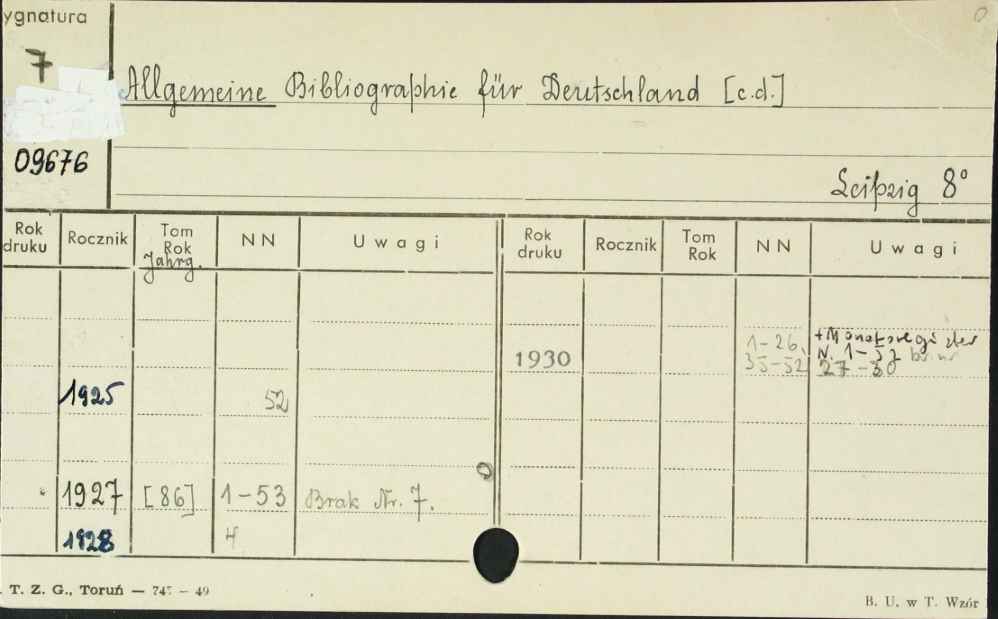 ygnatura
7
Allgemeine Bibliographie für Deutschland [c.d.]
09676
Leipzig 8°
Rok druku Rocznik Tom Rok Jahrg. NN Uwagi Rok druku Rocznik Tom Rok NN Uwagi
1-26, + Monatsregister
1930 35-52 N. 1-52
27-30
1925 52
1927 [86] 1-53 Brak Nr. 7.
1928 4
T. Z. G., Toruń — 747 — 49
B. U. w T. Wzór